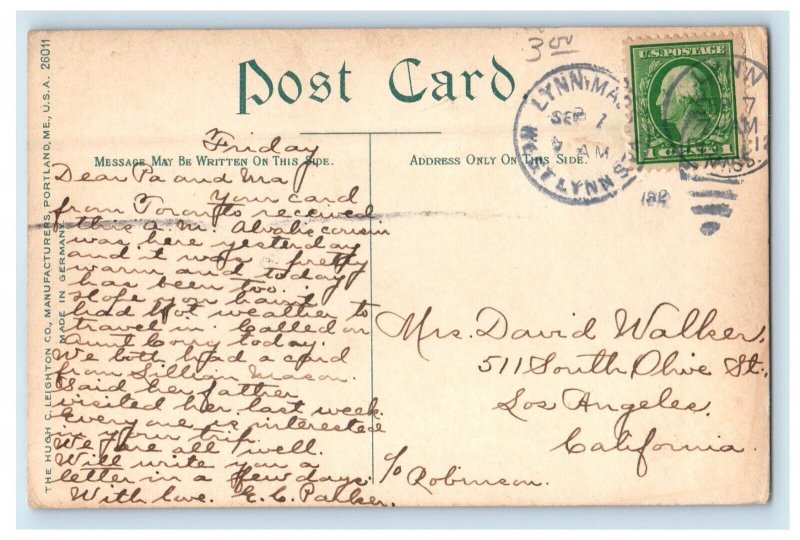 THE HUGH C. LEIGHTON CO., MANUFACTURERS, PORTLAND, ME., U.S.A. 26011
MADE IN GERMANY
Post Card.
300
U.S. POSTAGE
1 CENTS 1
LYNN MA
SEP 1
AM
WEST LYNN S
NN
7
AM
12
MASS.
Friday
MESSAGE MAY BE WRITTEN ON THIS SIDE.
ADDRESS ONLY ON THIS SIDE.
Dear Pa and Ma
Your card
from Toronto received
this a.m. cousin
was here yesterday
and it was pretty
warm and today
has been too. I
hope you havnt
had hot weather to
travel in. Called on
Aunt Corry today.
We both had a card
from Lillian Mason.
Said her father
visited her last week.
Every one is interested
in your trip.
We are all well.
Will write you a
letter in a few days.
With love. E. C. Palker.
Mrs. David Walker.
511 South Olive St.
Los Angeles.
California.
c/o Robinson.